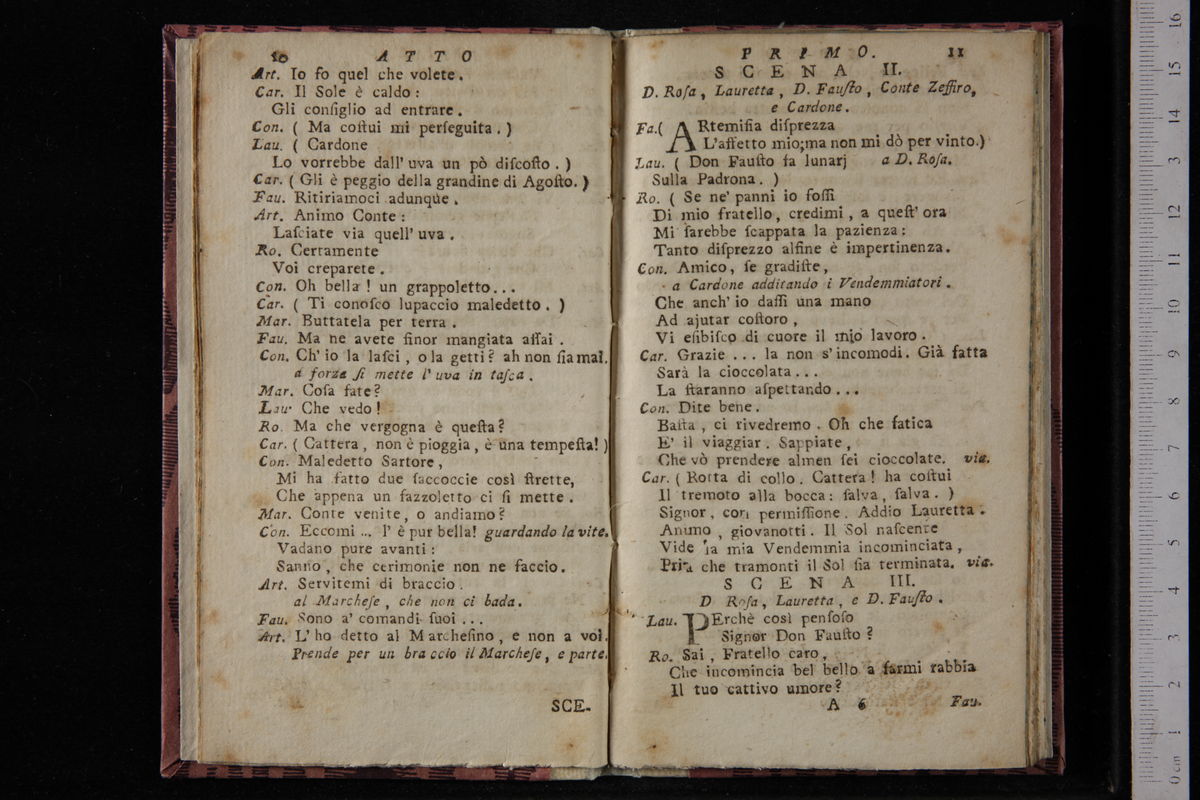 10 ATTO
Art. Io fo quel che volete.
Car. Il Sole è caldo:
Gli conſiglio ad entrare.
Con. ( Ma coſtui mi perſeguita. )
Lau. ( Cardone
Lo vorrebbe dall' uva un pò diſcoſto. )
Car. ( Gli è peggio della grandine di Agoſto. )
Fau. Ritiriamoci adunque.
Art. Animo Conte:
Laſciate via quell' uva.
Ro. Certamente
Voi creparete.
Con. Oh bella! un grappoletto...
Car. ( Ti conoſco lupaccio maledetto. )
Mar. Buttatela per terra.
Fau. Ma ne avete finor mangiata aſſai.
Con. Ch' io la laſci, o la getti? ah non ſia mai.
a forza ſi mette l' uva in taſca.
Mar. Coſa fate?
Lau. Che vedo!
Ro. Ma che vergogna è queſta?
Car. ( Cattera, non è pioggia, è una tempeſta! )
Con. Maledetto Sartore,
Mi ha fatto due ſaccoccie così ſtrette,
Che appena un fazzoletto ci ſi mette.
Mar. Conte venite, o andiamo?
Con. Eccomi... l' è pur bella! guardando la vite.
Vadano pure avanti:
Sanno, che cerimonie non ne faccio.
Art. Servitemi di braccio.
al Marcheſe, che non ci bada.
Fau. Sono a' comandi ſuoi...
Art. L' ho detto al Marcheſino, e non a voi.
Prende per un braccio il Marcheſe, e parte.
SCE-
PRIMO. 11
SCENA II.
D. Roſa, Lauretta, D. Fauſto, Conte Zeffiro,
e Cardone.
Fa.( ARtemiſia diſprezza
L'affetto mio;ma non mi dò per vinto.)
Lau. ( Don Fauſto fa lunarj a D. Roſa.
Sulla Padrona. )
Ro. ( Se ne' panni io foſſi
Di mio fratello, credimi, a queſt' ora
Mi ſarebbe ſcappata la pazienza:
Tanto diſprezzo alfine è impertinenza.
Con. Amico, ſe gradiſte,
a Cardone additando i Vendemmiatori.
Che anch' io daſſi una mano
Ad ajutar coſtoro,
Vi eſibiſco di cuore il mio lavoro.
Car. Grazie... la non s' incomodi. Già fatta
Sarà la cioccolata...
La ſtaranno aſpettando...
Con. Dite bene.
Baſta, ci rivedremo. Oh che fatica
E' il viaggiar. Sappiate,
Che vò prendere almen ſei cioccolate. via.
Car. ( Rotta di collo. Cattera! ha coſtui
Il tremoto alla bocca: ſalva, ſalva. )
Signor, con permiſſione. Addio Lauretta.
Animo, giovanotti. Il Sol naſcente
Vide la mia Vendemmia incominciata,
Pria che tramonti il Sol ſia terminata. via.
SCENA III.
D Roſa, Lauretta, e D. Fauſto.
Lau. PErchè così penſoſo
Signor Don Fauſto?
Ro. Sai, Fratello caro,
Che incomincia bel bello a farmi rabbia
Il tuo cattivo umore?
A 6 Fau.
0 cm 1 2 3 4 5 6 7 8 9 10 11 12 13 14 15 16